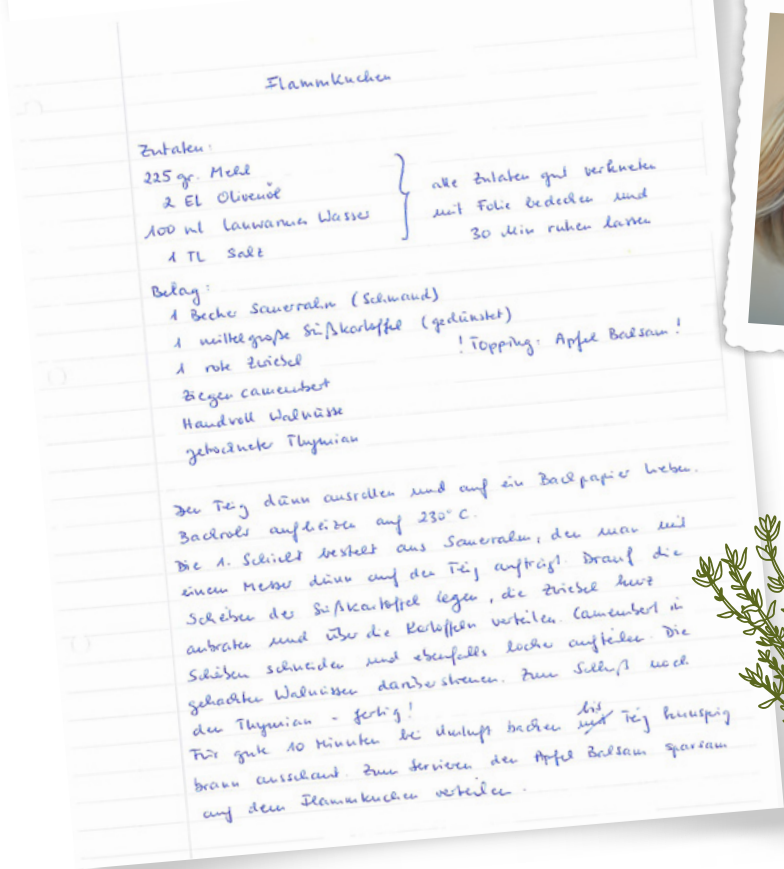 Flammkuchen
Zutaten:
225 gr. Mehl
2 EL Olivenöl
100 ml lauwarmes Wasser
1 TL Salz
alle Zutaten gut verkneten
mit Folie bedecken und
30 Min ruhen lassen
Belag:
1 Becher Sauerrahm (Schmand)
1 mittelgroße Süßkartoffel (gedünstet)
1 rote Zwiebel
! Topping: Apfel Balsam!
Ziegencamembert
Handvoll Walnüsse
getrockneter Thymian
Den Teig dünn ausrollen und auf ein Backpapier heben.
Backrohr aufheizen auf 230° C.
Die 1. Schicht besteht aus Sauerrahm, den man mit
einem Messer dünn auf den Teig aufträgt. Drauf die
Scheiben der Süßkartoffel legen, die Zwiebel kurz
anbraten und über die Kartoffeln verteilen. Camembert in
Scheiben schneiden und ebenfalls locker aufteilen. Die
gehackten Walnüsse darüberstreuen. Zum Schluß noch
den Thymian - fertig!
Für gute 10 Minuten bei Umluft backen bis Teig knusprig
braun ausschaut. Zum Servieren den Apfel Balsam sparsam
auf dem Flammkuchen verteilen.